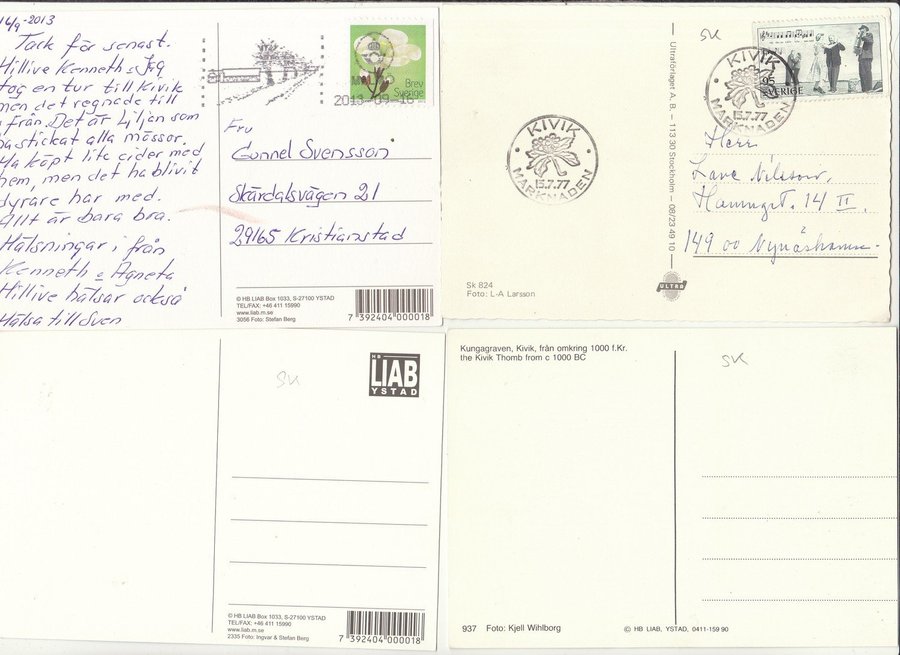 16/9-2013
Tack för senast.
Hillive Kenneth o Jg
tog en tur till Kivik
men det regnade till
ifrån. Det är Liljan som
ha stickat alla mössor.
Ha köpt lite cider med
hem, men det ha blivit
dyrare har med.
Allt är bara bra.
Hälsningar i från
Kenneth o Agneta
Hillive hälsar också
Hälsa till Sven
Brev
Sverige
2013-09-16
Fru
Gunnel Svensson
Skärdalsvägen 21
29165 Kristianstad
© HB LIAB Box 1033, S-27100 YSTAD
TEL/FAX: +46 411 15990
www.liab.m.se
3056 Foto: Stefan Berg
7 392404 000018
SK
KIVIK
15.7.77
MARKNADEN
95
SVERIGE
KIVIK
15.7.77
MARKNADEN
Ultraförlaget A. B. – 113 30 Stockholm – 08/23 49 10
Herr
Nilsson,
Hamng. 14 II.
149 00 Nynäshamn
Sk 824
Foto: L-A Larsson
ULTRA
SK
HB
LIAB
YSTAD
© HB LIAB Box 1033, S-27100 YSTAD
TEL/FAX: +46 411 15990
www.liab.m.se
2335 Foto: Ingvar & Stefan Berg
7 392404 000018
Kungagraven, Kivik, från omkring 1000 f.Kr.
the Kivik Thomb from c 1000 BC
SK
937 Foto: Kjell Wihlborg
© HB LIAB, YSTAD, 0411-159 90